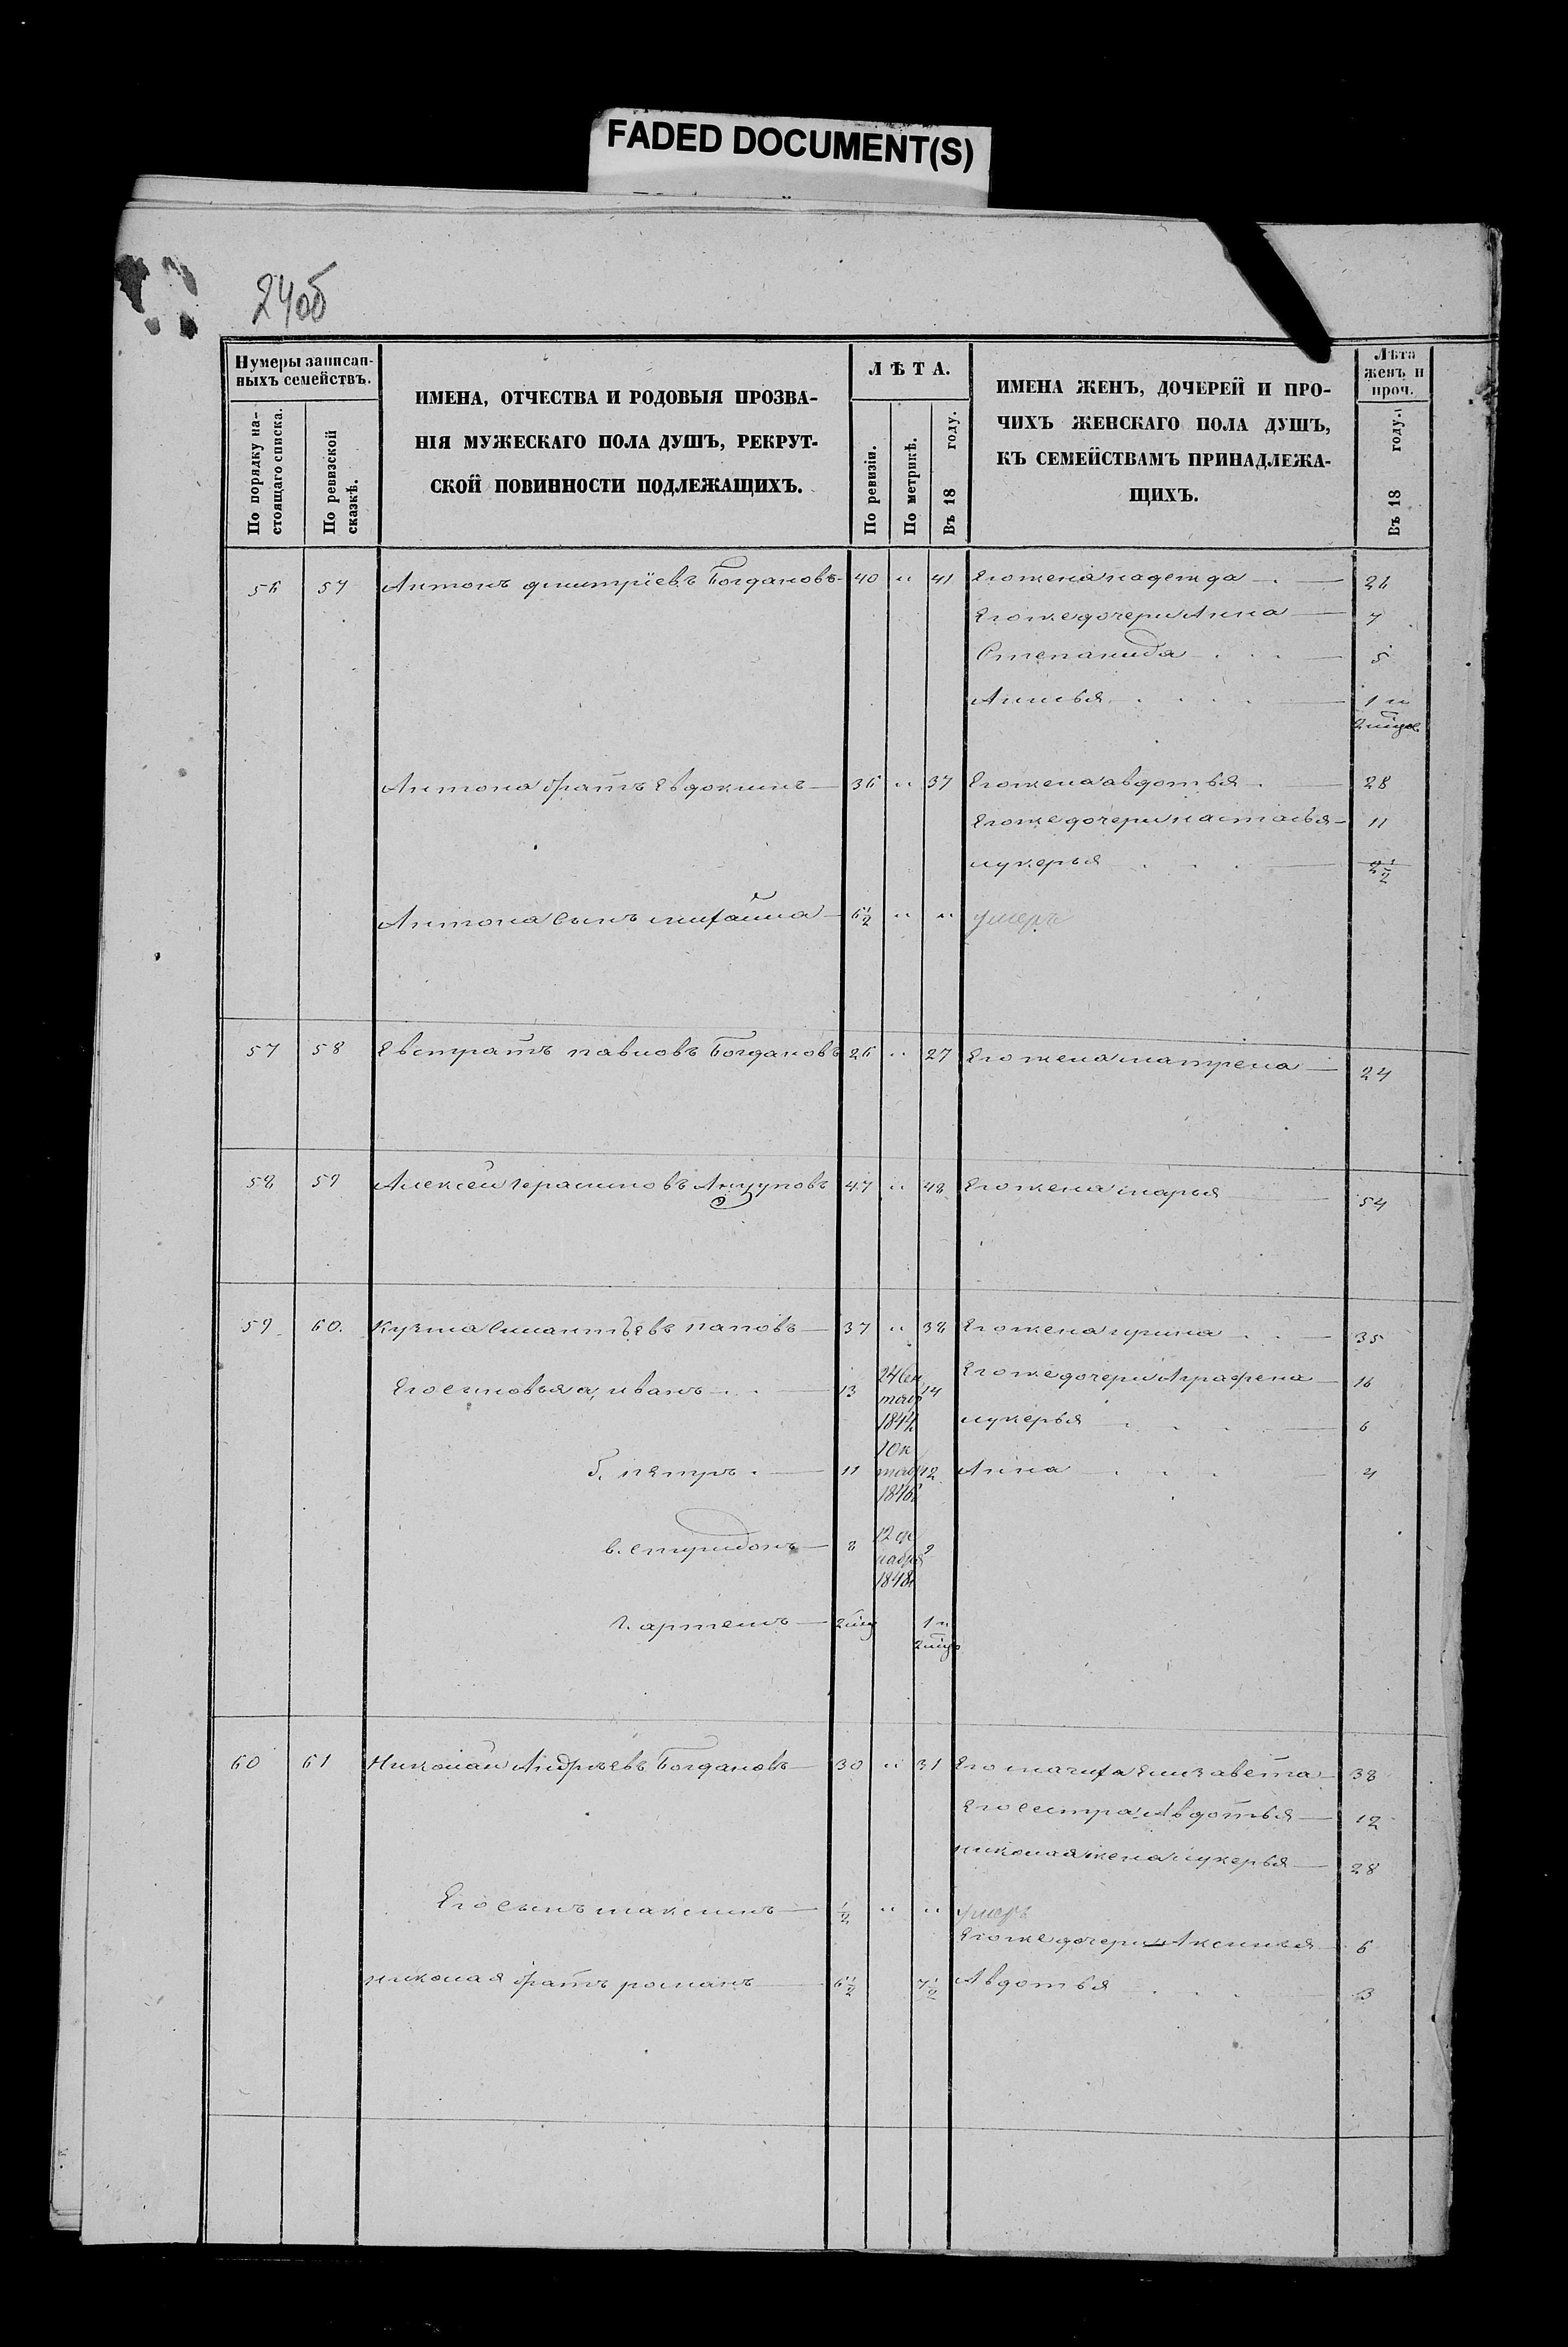 FADED DOCUMENT(S)
24об
Нумеры записан-
ныхъ семействъ.
По порядку на-
стоящаго списка.
По ревизской
сказкѣ.
ИМЕНА, ОТЧЕСТВА И РОДОВЫЯ ПРОЗВА-
НІЯ МУЖЕСКАГО ПОЛА ДУШЪ, РЕКРУТ-
СКОЙ ПОВИННОСТИ ПОДЛЕЖАЩИХЪ.
ЛѢТА.
По ревизіи.
По метрикѣ.
Въ 18 году.
ИМЕНА ЖЕНЪ, ДОЧЕРЕЙ И ПРО-
ЧИХЪ ЖЕНСКАГО ПОЛА ДУШЪ,
КЪ СЕМЕЙСТВАМЪ ПРИНАДЛЕЖА-
ЩИХЪ.
Лѣта
женъ и
проч.
Въ 18 году.
56 57 Антонъ дмитріевъ Богдановъ 40 " 41 Его жена надежда 26
Его же дочери Анна 7
Степанида 5
Анисья 1 и
2 мѣся.
Антона братъ Евдокимъ 36 " 37 Его жена авдотья 28
Его же дочери настасья 11
лукерья 2 1/2
Антона сынъ михайла 6 1/2 " " умеръ
57 58 Евстратъ павловъ Богдановъ 26 " 27 Его жена матрена 24
58 59 Алексей герасимовъ 47 " 48 Его жена марья 54
59 60. Кузма паповъ 37 " 38 Его жена ирина 35
Его сыновья а, иванъ 13 24 Сен
тябр 14
1844 Его же дочери Аграфена 16
лукерья 6
б. петръ 11 1 Ок
тябр 12
1846 Анна 4
в. спиридонъ 8 12 де
кабря 9
1848
г. артемъ 2 мѣц 1 и
2 мѣцъ
60 61 Николай Андреевъ Богдановъ 30 " 31 Его мачиха Елизавета 38
Его сестра Авдотья 12
николая жена лукерья 28
Его сынъ максимъ 1/2 " " умеръ
Его же дочери Аксинья 6
николая братъ романъ 6 1/2 7 1/2 Авдотья 3